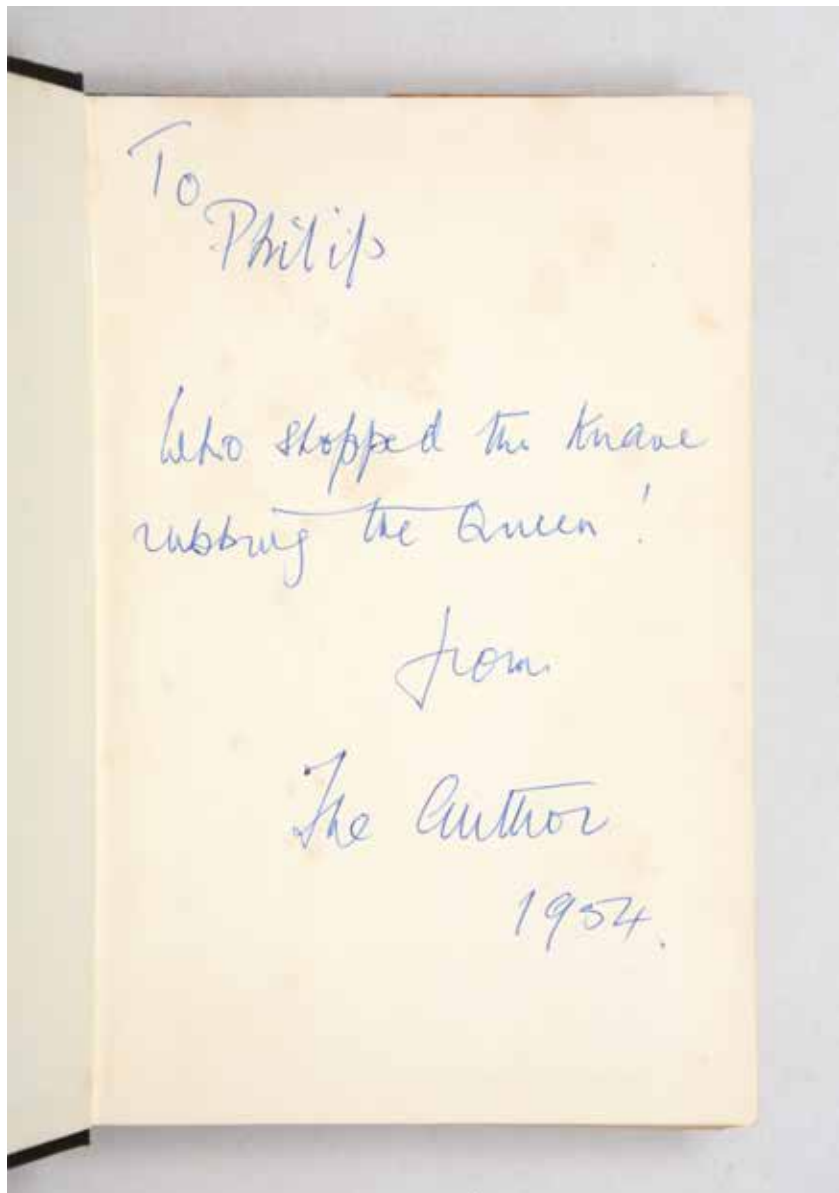 To
Philip
Who stopped the Knave
rubbing the Queen!
from
The Author
1954.